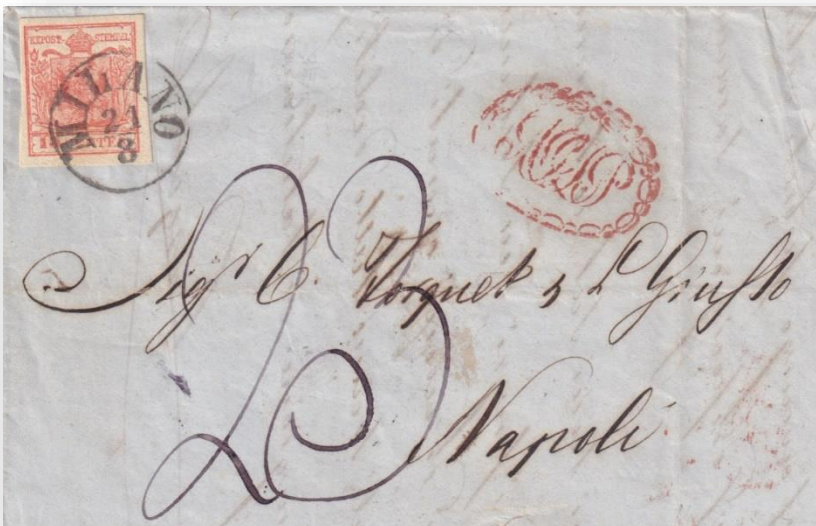 KKPOST-STEMPEL
MILANO
21
8
23
Sigr C. Forquet e L Giusso
Napoli